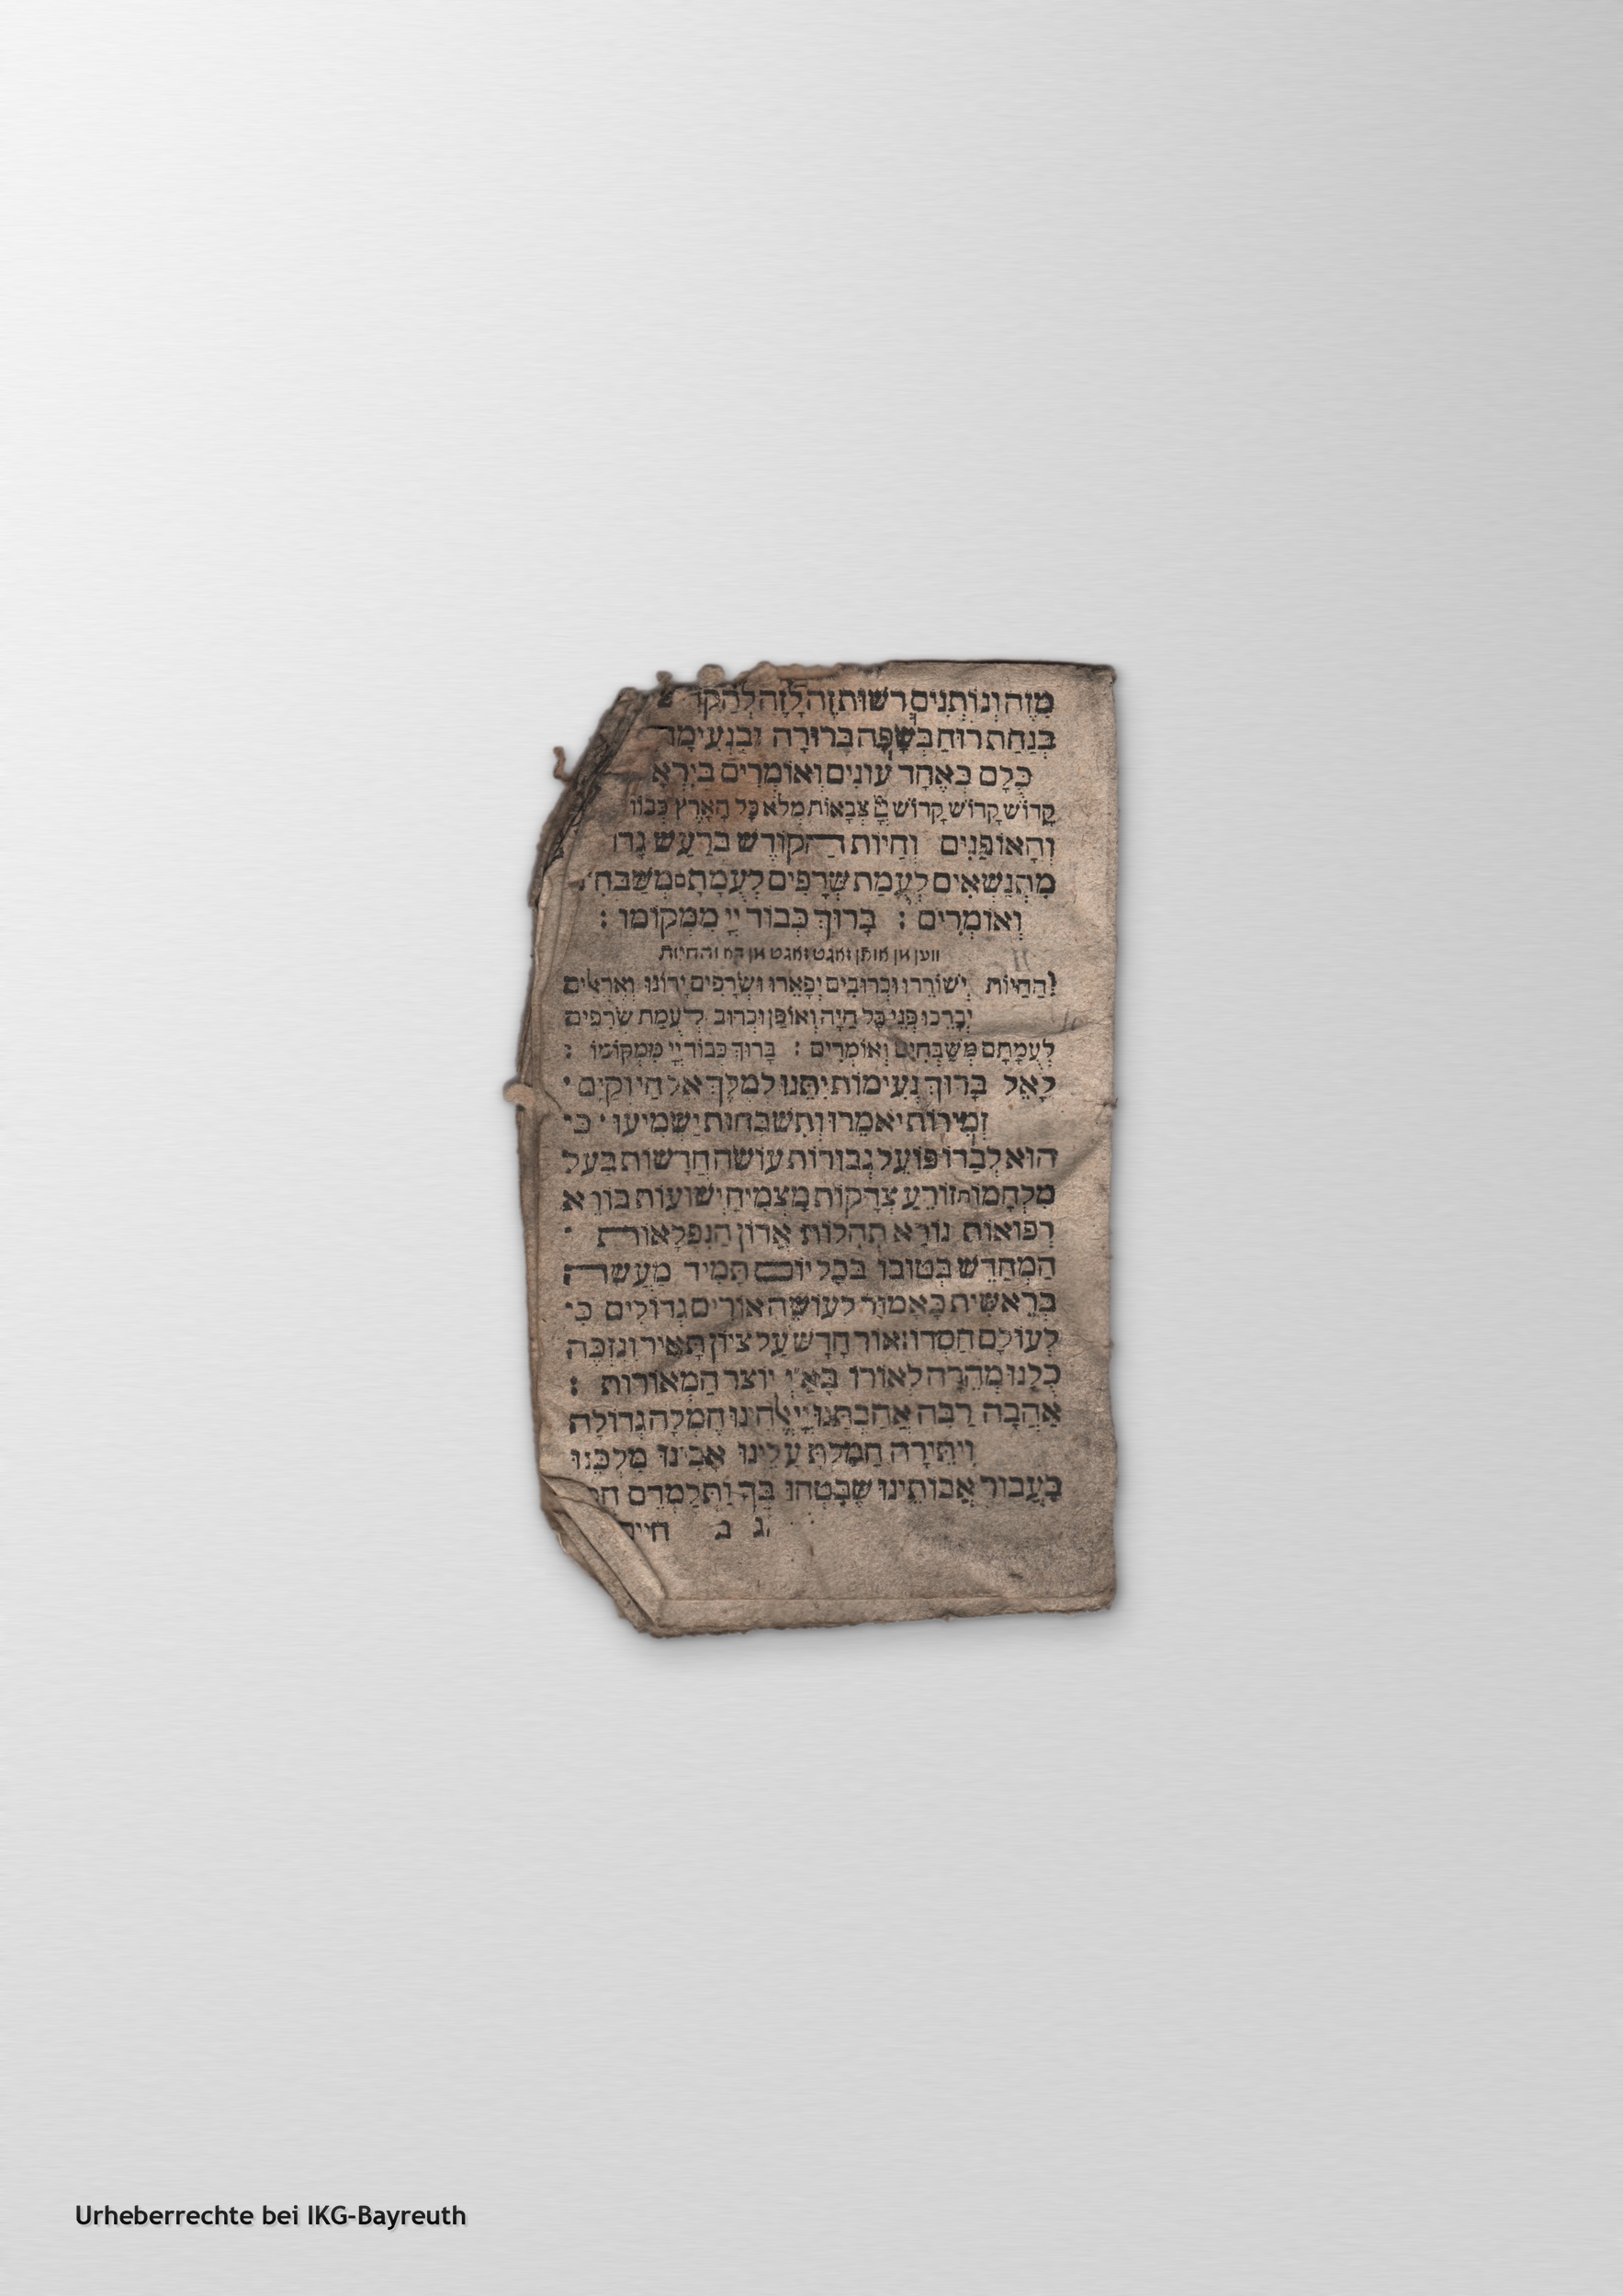 מִזֶה וְנוֹתְנִים רְשׁוּת זֶה לָזֶה לְהַקְדִ
בְּנַחַת רוּחַ בְּשָׂפָה בְרוּרָה וּבִנְעִימָה
כֻּלָם כְּאֶחָד עוֹנִים וְאוֹמְרִים בְּיִרְאָ
קָדוֹשׁ קָדוֹשׁ קָדוֹשׁ יְיָ צְבָאוֹת מְלֹא כָל הָאָרֶץ כְּבוֹדוֹ
וְהָאוֹפַנִּים וְחַיוֹת הַקוֹדֶשׁ בְּרַעַשׁ גָדוֹ
מִתְנַשְּׂאִים לְעֻמַת שְּׂרָפִים לְעֻמָתָם מְשַׁבְּחִי
וְאוֹמְרִים : בָּרוּךְ כְּבוֹד יְיָ מִמְּקוֹמוֹ :
ווען מן אופן זאגט זאגט מן דא והחיות
וְהַחַיּוֹת יְשׁוֹרֵרוּ וּכְרוּבִים יְפָאֵרוּ וּשְׂרָפִים יָרוֹנּוּ וְאֶרְאֶלִים
יְבָרֵכוּ פְּנֵי כָּל חַיָה וְאוֹפַן וּכְרוּב לְעֻמַת שְׂרָפִים
לְעֻמָתָם מְשַׁבְּחִים וְאוֹמְרִים : בָּרוּךְ כְּבוֹד יְיָ מִמְּקוֹמוֹ :
לָאֵל בָּרוּךְ נְעִימוֹת יִתֵּנוּ לְמֶלֶךְ אֵל חַי וְקַיָם ·
זְמִירוֹת יֹאמֵרוּ וְתִשְׁבָּחוֹת יַשְׁמִיעוּ · כִּי
הוּא לְבַדּוֹ פּוֹעֵל גְבוּרוֹת עוֹשֶׂה חֲדָשׁוֹת בַּעַל
מִלְחָמוֹת זוֹרֵעַ צְדָקוֹת מַצְמִיחַ יְשׁוּעוֹת בּוֹרֵא
רְפוּאוֹת נוֹרָא תְהִלוֹת אֲדוֹן הַנִפְלָאוֹת ·
הַמְחַדֵּשׁ בְּטוּבוֹ בְּכָל יוֹם תָּמִיד מַעֲשֵׂה
בְרֵאשִׁית כָּאָמוּר לְעוֹשֵׂה אוֹרִים גְּדוֹלִים כִּי
לְעוֹלָם חַסְדּוֹ אוֹר חָדָשׁ עַל צִיּוֹן תָּאִיר וְנִזְכֶּה
כֻלָּנוּ מְהֵרָה לְאוֹרוֹ בָּא"יְ יוֹצֵר הַמְּאוֹרוֹת :
אַהֲבָה רַבָּה אֲהַבְתָּנוּ יְיָ אֱלֹהֵינוּ חֶמְלָה גְדוֹלָה
וִיתֵירָה חָמַלְתָּ עָלֵינוּ אָבִינוּ מַלְכֵּנוּ
בַּעֲבוּר אֲבוֹתֵינוּ שֶׁבָּטְחוּ בְךָ וַתְּלַמְּדֵם חֻ
ג ב
Urheberrechte bei IKG-Bayreuth